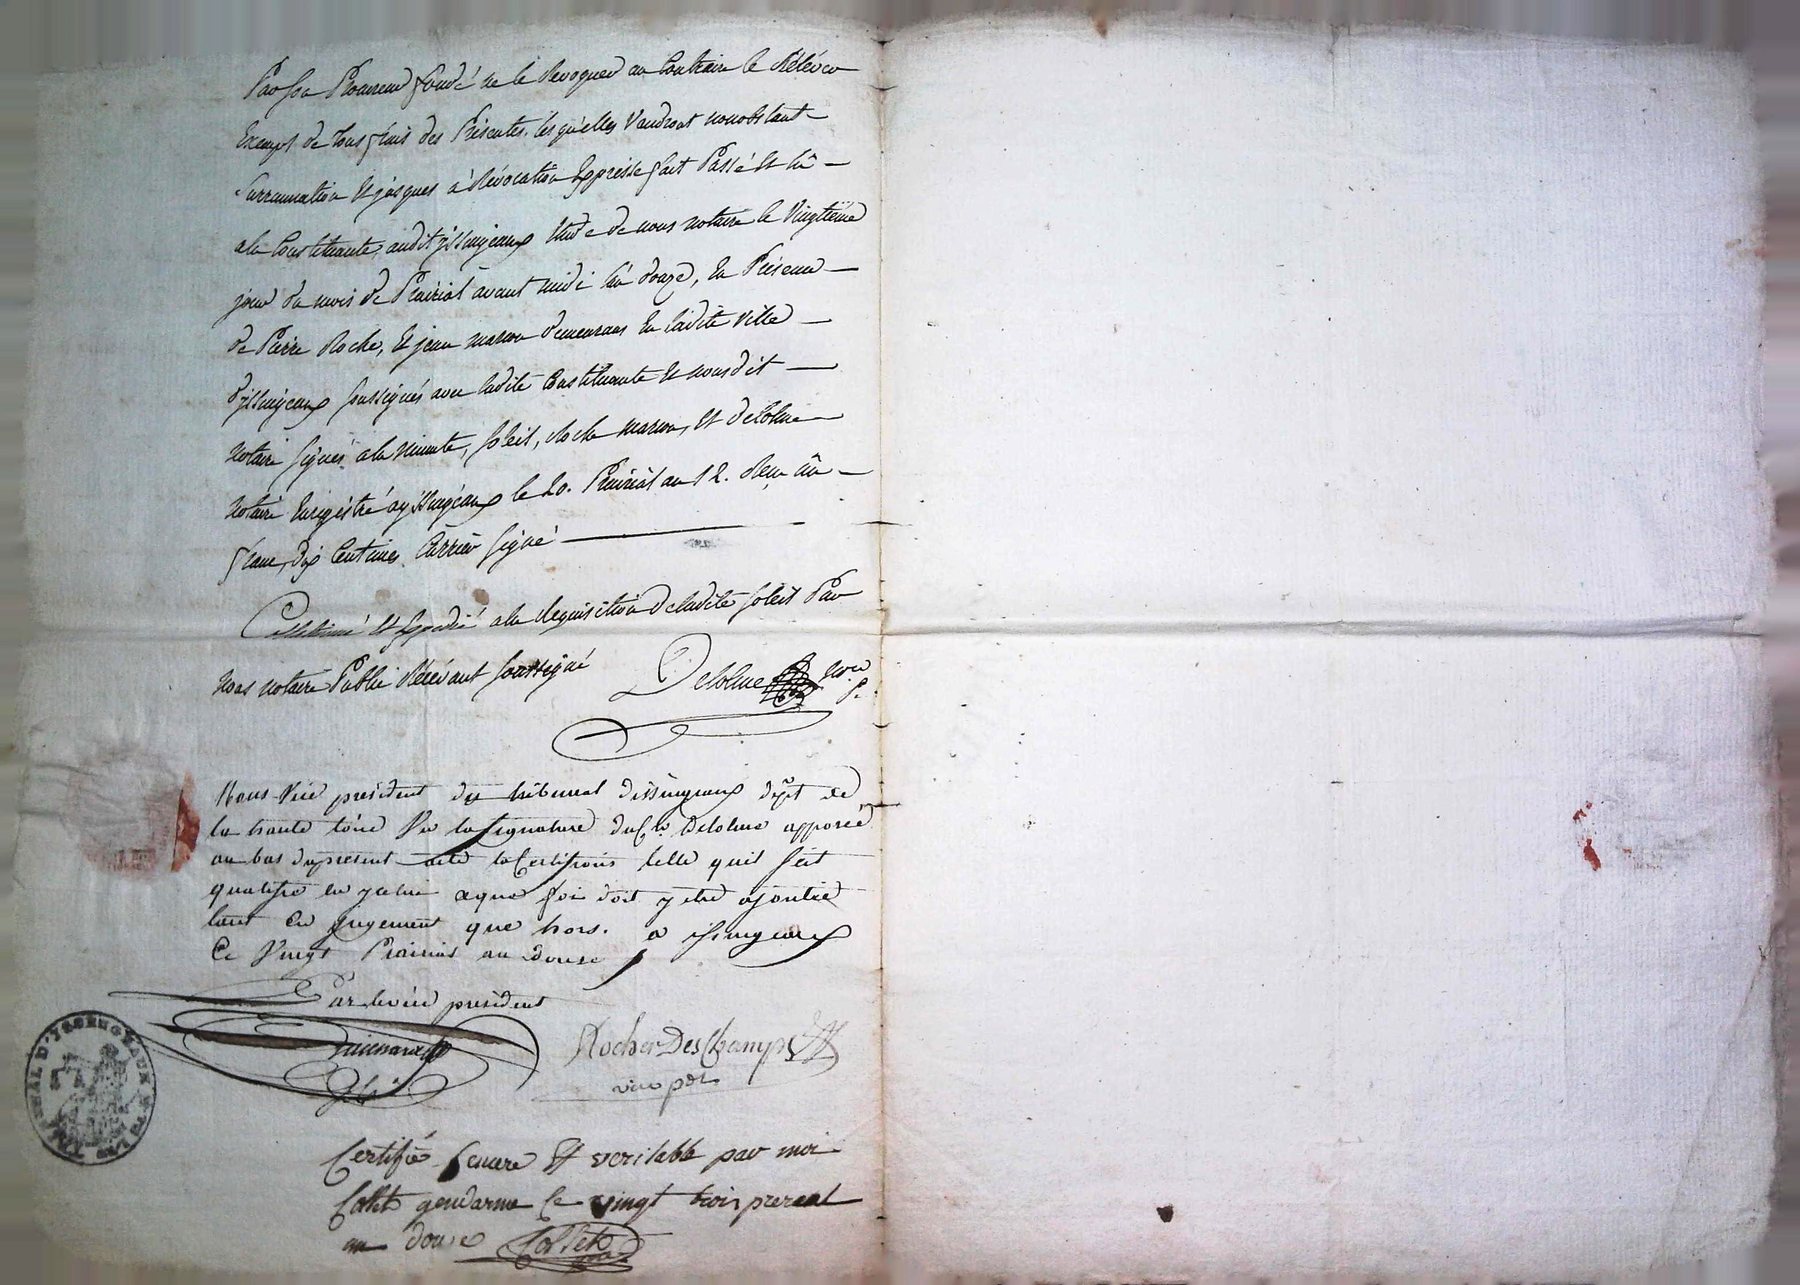 Par son Procureur fondé ne le Revoquer au Contraire le Rélévér
Exempt de tous frais des Présentes. lesqu'elles Vaudront nonobstant
surrannation Et jusques a Révocation Expresse fait Passé Et lû
ala Constituante, audit yssingeaux Etude de nous notaire le Vingtième
jour du mois de Prairial avant midi l'an douze, En Présence
de Pierre Roche, Et jean marcon demeurans En ladite Ville
d'yssingeaux soussignés avec ladite Constituante Et nousdit
Notaire signés ala Minute, Soleil, Roche marcon, Et Delolme
Notaire Enrégistré ayssingeaux le 20. Prairial an 12. Reçu un
franc, dix Centimes Carrier signé
Collationné Et Expedié ala Requisition de ladite Soleil Par
Nous notaire Public Récévant soussigné Delolme Nore
P.
Nous Vice président du tribunal dissingeaux dept de
la haute loire Vu la signature du Cn. Delolme apposée
au bas du present acte la Certifions telle quil sest
qualifie en ycelui aque foi doit y etre ajoutée
tant en jugement que hors. a issingeaux
Ce Vingt Prairial an douse
Par le vice president
Rocher DesChamps
vice pdt
TRIBUNAL D'YSSENGEAUX
Certifié sincere Et veritable par moi
Collet gendarme Ce vingt trois prereal
an douse Collet